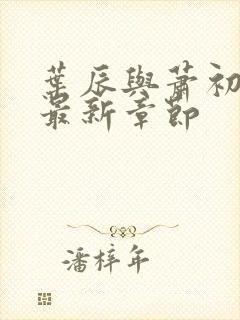 葉辰與蕭初
最新章節
潘梓年